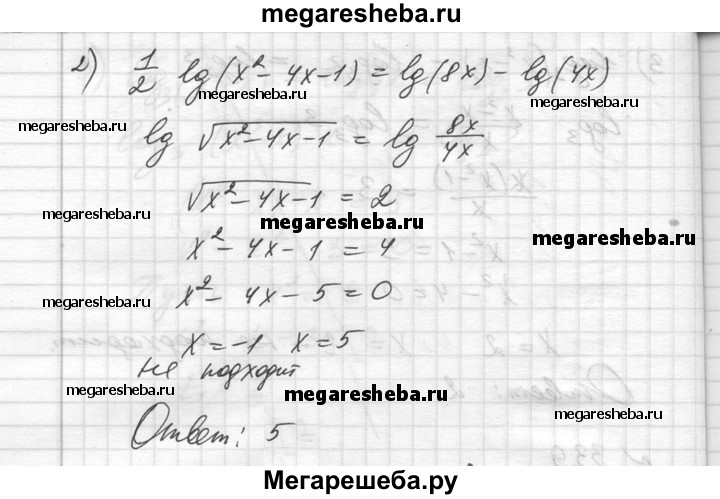 megaresheba.ru
2) 1/2 lg(x²-4x-1) = lg(8x) - lg(4x)
megaresheba.ru megaresheba.ru
megaresheba.ru
lg √x²-4x-1 = lg 8x/4x
megaresheba.ru
√x²-4x-1 = 2
megaresheba.ru
megaresheba.ru
megaresheba.ru
x²-4x-1 = 4
x²-4x-5=0
megaresheba.ru
x=-1 x=5
не подходит
megaresheba.ru
megaresheba.ru
megaresheba.ru
Ответ: 5
Мегарешеба.ру